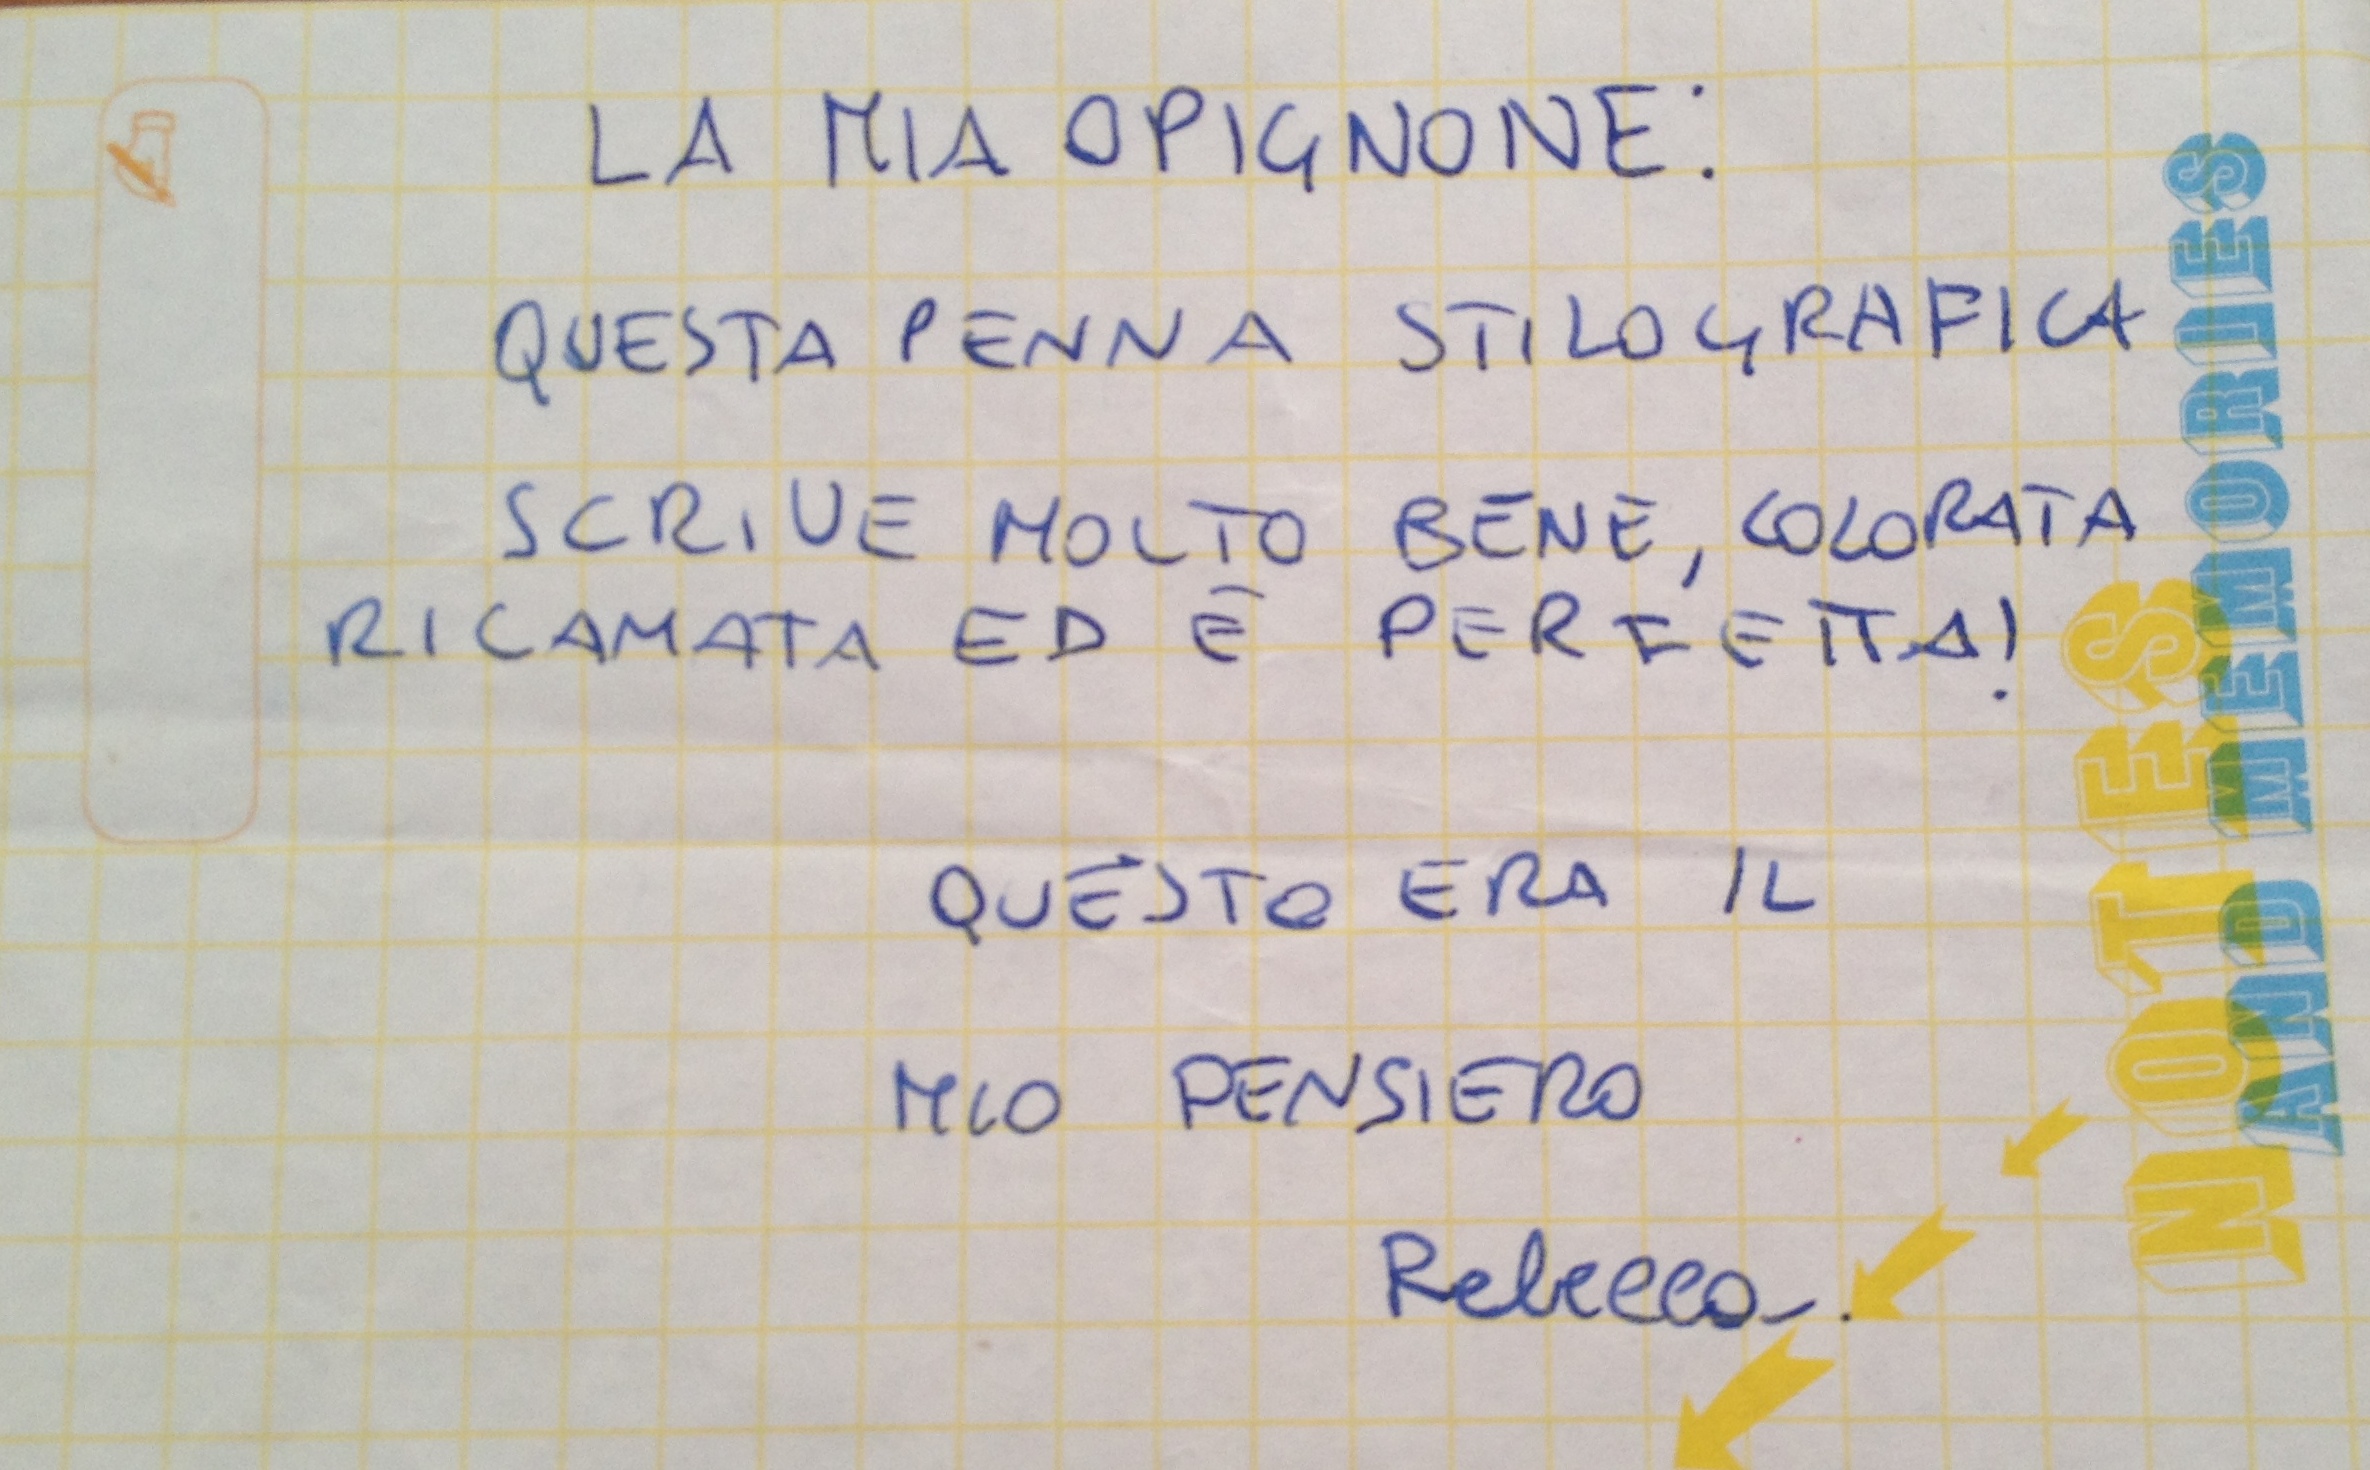 LA MIA OPIGNONE:
QUESTA PENNA STILOGRAFICA
SCRIVE MOLTO BENE, COLORATA
RICAMATA ED È PERFETTA!
QUESTO ERA IL
MIO PENSIERO
Rebecca.
NOTES
AND MEMORIES